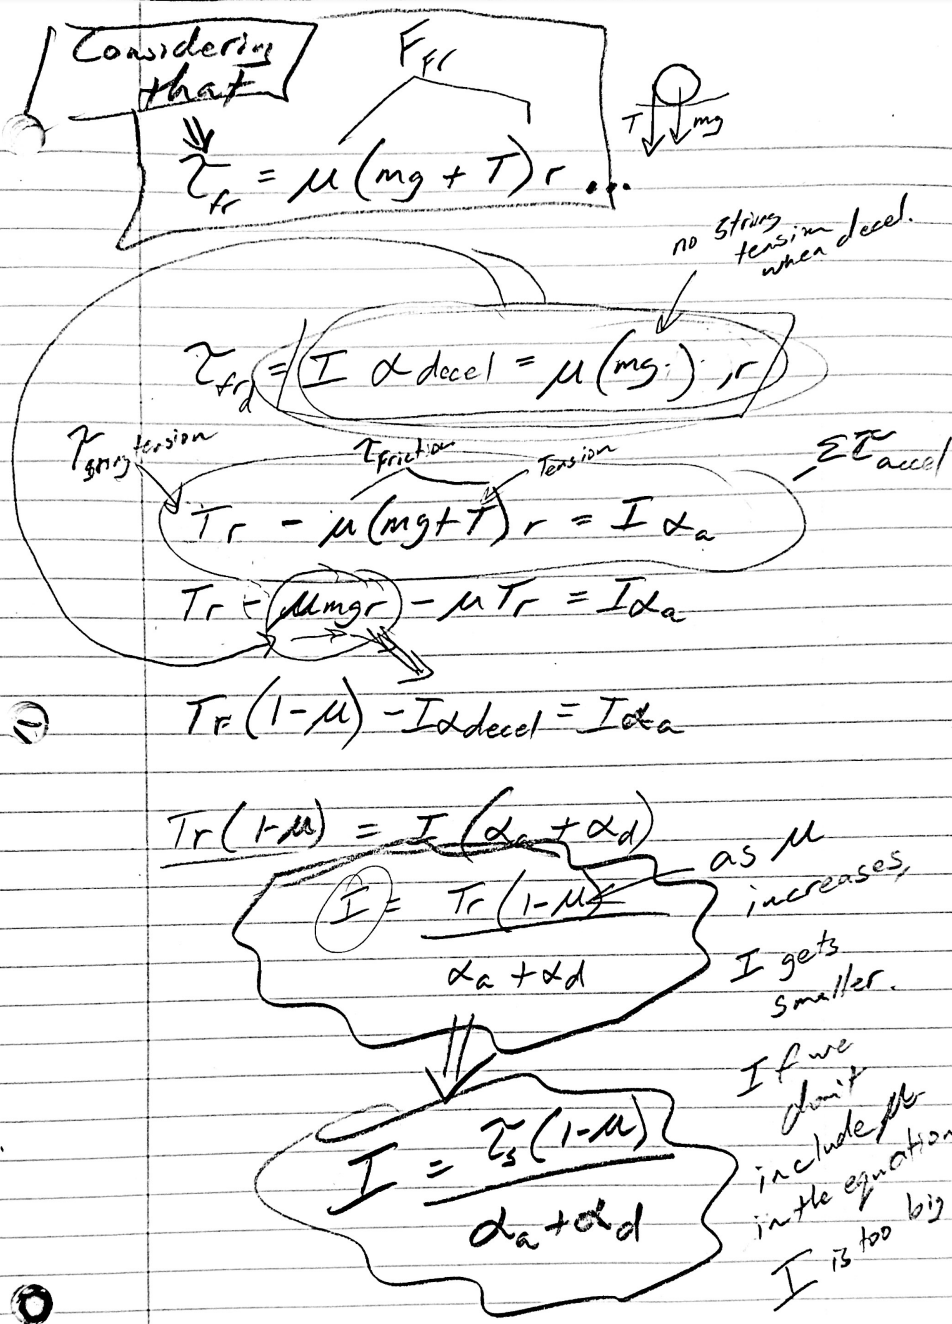 Considering
that
F_fr
τ_fr = μ(mg + T) r ...
T mg
no string
tension
when decel.
τ_frd = I α decel = μ(mg) r
τ string tension
τ Friction
Tension
Στ accel
Tr - μ(mg+T) r = I α_a
Tr - μmgr - μTr = Iα_a
Tr(1-μ) - Iα decel = Iα_a
Tr(1-μ) = I (α_a + α_d)
I = Tr(1-μ)
α_a + α_d
as μ
increases,
I gets
smaller.
I = τ_s(1-μ)
α_a + α_d
If we
don't
include μ
in the equation
I is too big